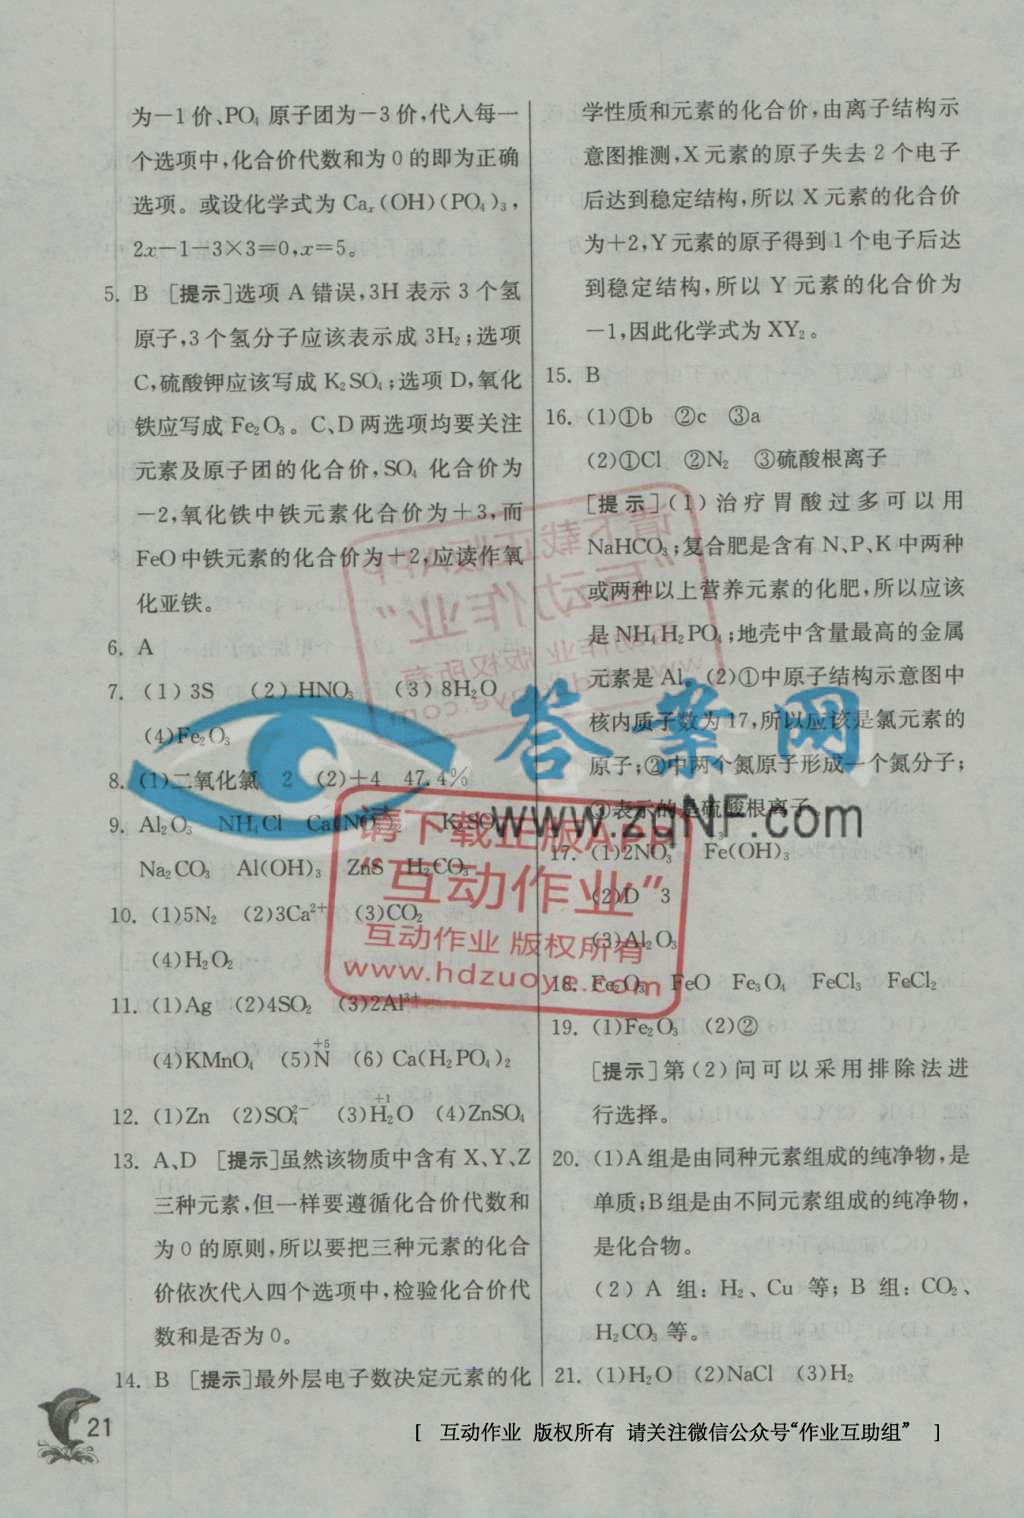 为-1价、PO₄原子团为-3价,代入每一
个选项中,化合价代数和为0的即为正确
选项。或设化学式为Caₓ(OH)(PO₄)₃,
2x-1-3×3=0,x=5。
5. B [提示]选项A错误,3H表示3个氢
原子,3个氢分子应该表示成3H₂;选项
C,硫酸钾应该写成K₂SO₄;选项D,氧化
铁应写成Fe₂O₃。C、D两选项均要关注
元素及原子团的化合价,SO₄化合价为
-2,氧化铁中铁元素化合价为+3,而
FeO中铁元素的化合价为+2,应读作氧
化亚铁。
6. A
7. (1)3S (2)HNO₃ (3)8H₂O
(4)Fe₂O₃
8. (1)二氧化氯 2 (2)+4 47.4%
9. Al₂O₃ NH₄Cl Ca(NO₃)₂ K₂SO₄
Na₂CO₃ Al(OH)₃ ZnS H₂CO₃
10. (1)5N₂ (2)3Ca²⁺ (3)CO₂
(4)H₂O₂
11. (1)Ag (2)4SO₂ (3)2Al³⁺
+5
(4)KMnO₄ (5)N (6)Ca(H₂PO₄)₂
+1
12. (1)Zn (2)SO₄²⁻ (3)H₂O (4)ZnSO₄
13. A、D [提示]虽然该物质中含有X、Y、Z
三种元素,但一样要遵循化合价代数和
为0的原则,所以要把三种元素的化合
价依次代入四个选项中,检验化合价代
数和是否为0。
14. B [提示]最外层电子数决定元素的化
学性质和元素的化合价,由离子结构示
意图推测,X元素的原子失去2个电子
后达到稳定结构,所以X元素的化合价
为+2,Y元素的原子得到1个电子后达
到稳定结构,所以Y元素的化合价为
-1,因此化学式为XY₂。
15. B
16. (1)①b ②c ③a
(2)①Cl ②N₂ ③硫酸根离子
[提示](1)治疗胃酸过多可以用
NaHCO₃;复合肥是含有N、P、K中两种
或两种以上营养元素的化肥,所以应该
是NH₄H₂PO₄;地壳中含量最高的金属
元素是Al。(2)①中原子结构示意图中
核内质子数为17,所以应该是氯元素的
原子;②中两个氮原子形成一个氮分子;
③表示的是硫酸根离子。
17. (1)2NO₃⁻ Fe(OH)₃
(2)D 3
(3)Al₂O₃
18. Fe₂O₃ FeO Fe₃O₄ FeCl₃ FeCl₂
19. (1)Fe₂O₃ (2)②
[提示]第(2)问可以采用排除法进
行选择。
20. (1)A组是由同种元素组成的纯净物,是
单质;B组是由不同元素组成的纯净物,
是化合物。
(2)A组:H₂、Cu等;B组:CO₂、
H₂CO₃等。
21. (1)H₂O (2)NaCl (3)H₂
21
答案网
www.zqNF.com
请下载正版APP
“互动作业”
互动作业 版权所有
www.hdzuoye.com
[ 互动作业 版权所有 请关注微信公众号“作业互助组” ]